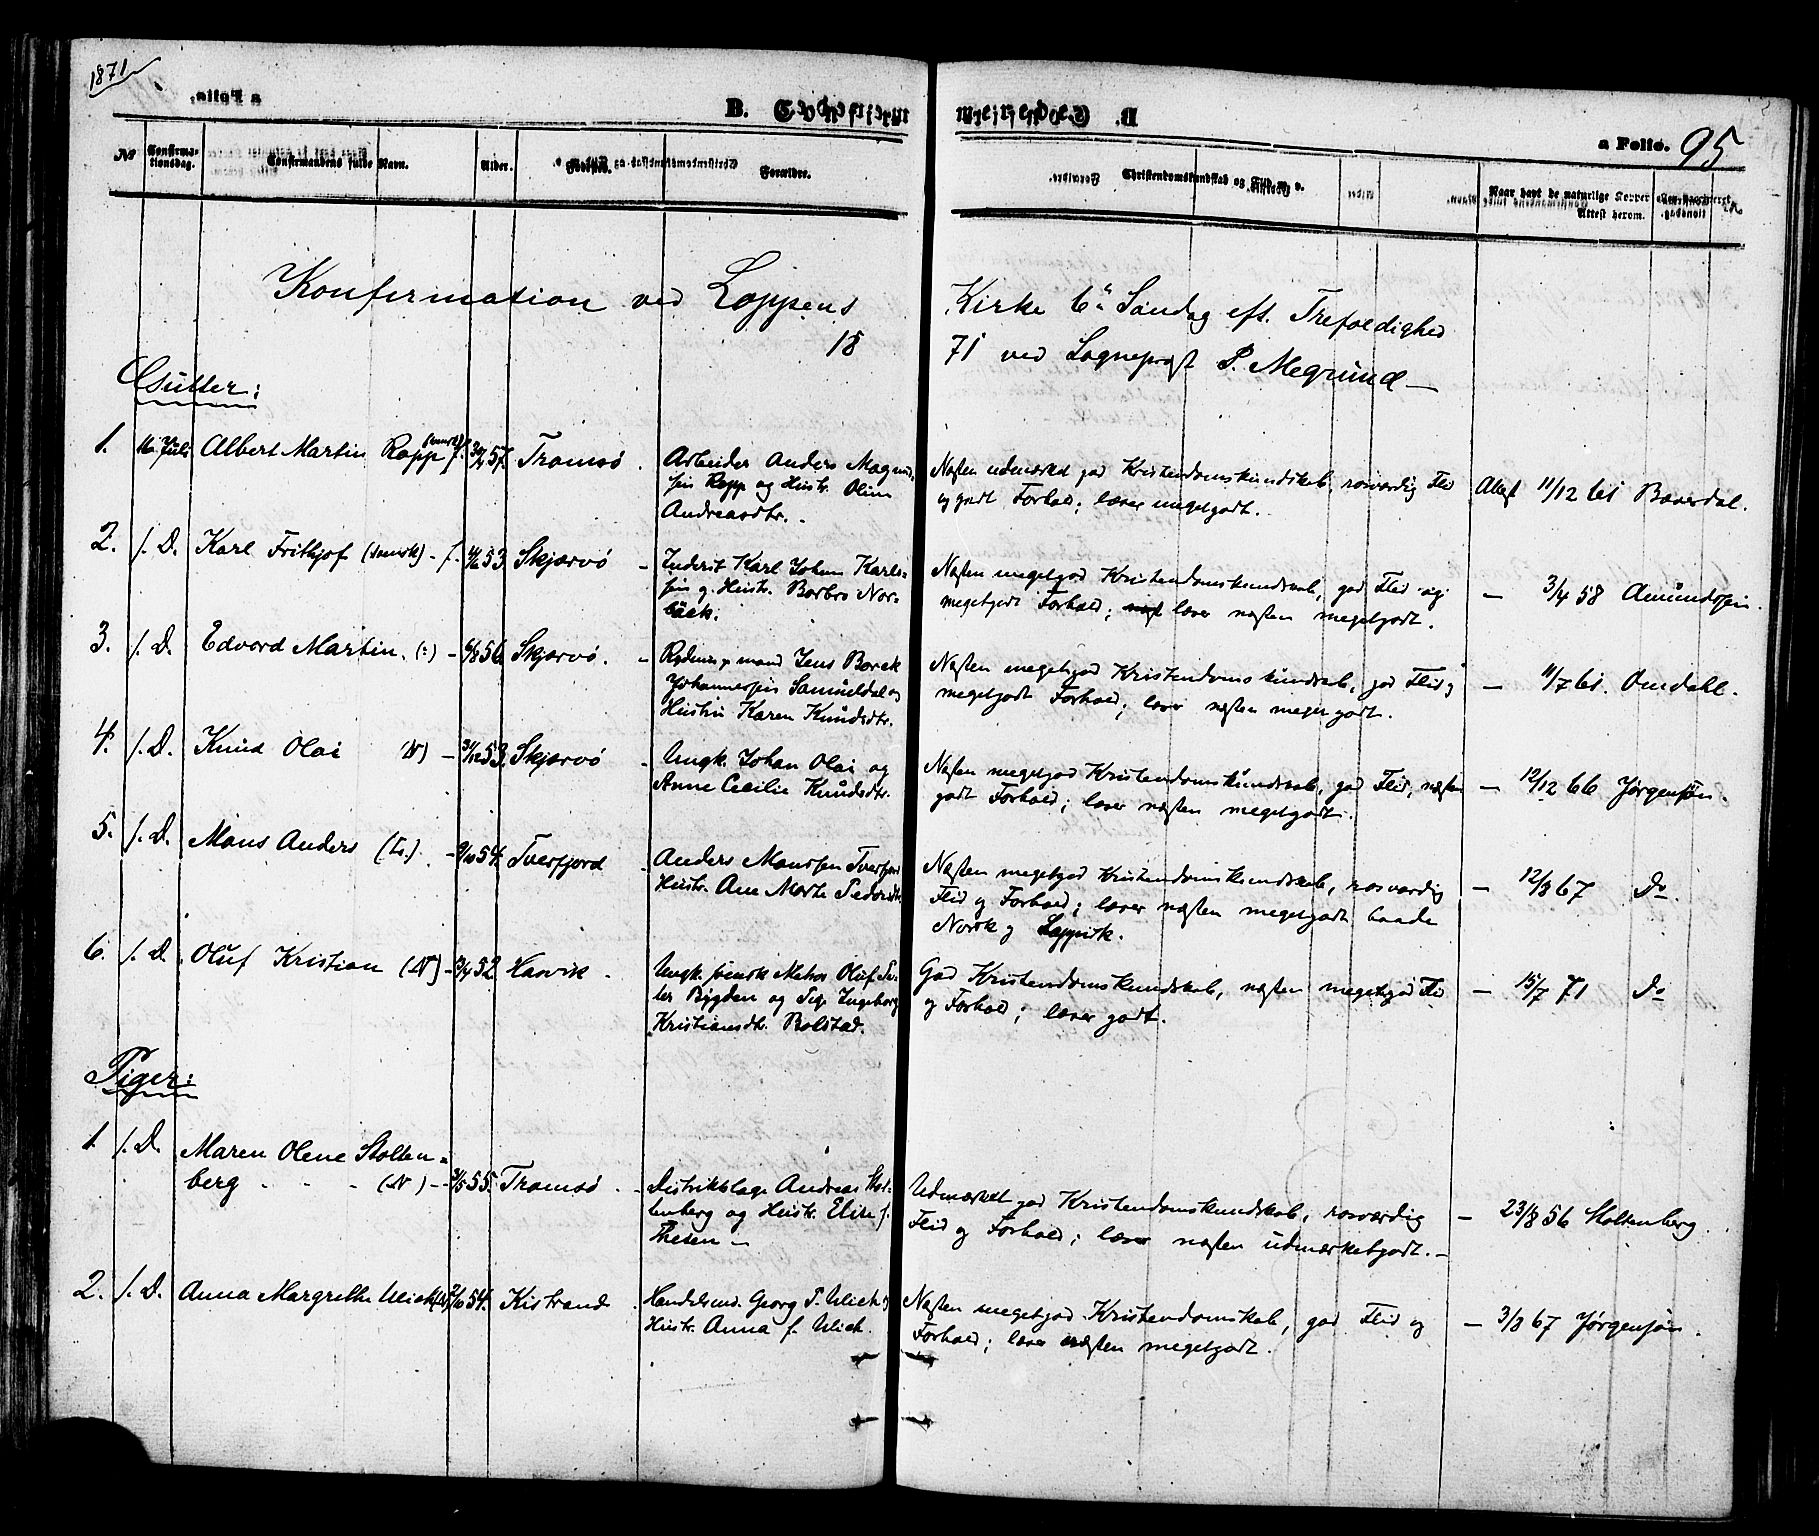 1871
B. Confirm
a Folio. 95
No
Confirmationsdag.
Confirmandens fulde Navn.
Alder.
Fødested.
Forældre.
Christendomskundskab og Flid m. v.
Naar havt de naturlige Kopper
Attest herom.
Konfirmation ved Loppens Kirke 6te Søndag eft. Trefoldighed
1871 ved Sogneprest P. Megrund
Gutter:
1. 16. Juli Albert Martin Rapp f. 57. Tromsö. Arbeider Anders Magnus-
sen Rapp og Hustr. Olina
Andreasdtr. Næsten udmærket god Kristendomskundskab, rosværdig Flid
og godt Forhold; læser megetgodt. Attest 11/12 61 Baverdal.
2. s. D. Karl Frithjof f. 53 Skjærvö Inderst Karl Johan Karls-
sen og Hustr. Barbro Nor-
bäck. Næsten megetgod Kristendomskundskab, god Flid og
megetgodt Forhold; læser næsten megetgodt. — 3/4 58 Amundssen.
3. s. D. Edvard Martin. 6/8 56 Skjærvö. Rydningsmand Jens Borck
Johannessen Samueldal og
Hustru Karen Knudsdtr. Næsten megetgod Kristendomskundskab, god Flid og
megetgodt Forhold; læser næsten megetgodt. — 11/7 61. Omdahl.
4. s. D. Knud Olai (N) — 31/12 53. Skjærvö Ungk. Johan Olai og
Anne Cecilie Knudsdtr. Næsten megetgod Kristendomskundskab, god Flid, næsten
godt Forhold; læser næsten megetgodt. — 12/12 66 Jørgensøn.
5. s. D. Mons Anders — 9/10 54. Tverfjord Anders Monssen Tverfjord
Hustr. Ane Marte Pedersdtr. Næsten megetgod Kristendomskundskab, rosværdig
Flid og Forhold; læser næsten megetgodt baade
Norsk og Lappisk. — 12/8 67 Do.
6. s. D. Oluf Kristian (N) — 52. Hasvik. Ungk. svensk Matros Oluf Pe-
ter Bygden og Pige Ingeborg
Kristiansdtr. Bolstad. God Kristendomskundskab, næsten megetgod Flid
og Forhold; læser godt. — 15/7 71 Do
Piger:
1. s. D. Maren Olene Stolten-
berg (N) 55. Tromsö. Distriktslæge Andreas Stol-
tenberg og Hustr. Elise f.
Thesen — Udmærket god Kristendomskundskab, rosværdig
Flid og Forhold; læser næsten udmærketgodt. — 23/8 56 Stoltenberg
2. s. D. Anna Margrethe Ulich (N) 54. Kistrand. Handelsmd. Georg P. Ulich og
Hustr. Anna f. Ulich. Næsten megetgod Kristendomskab, god Flid og
Forhold; læser næsten megetgodt. — 3/8 67 Jørgensøn.